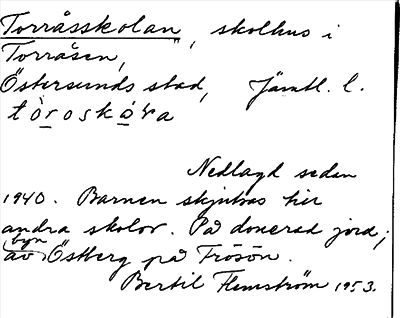 Torråsskolan, skolhus i
Torråsen,
Östersunds stad, Jämtl. l.
tòroskола
Nedlagd sedan
1940. Barnen skjutsas till
andra skolor. På donerad jord,
byn
av Östberg på Frösön.
Bertil Flemström 1953.